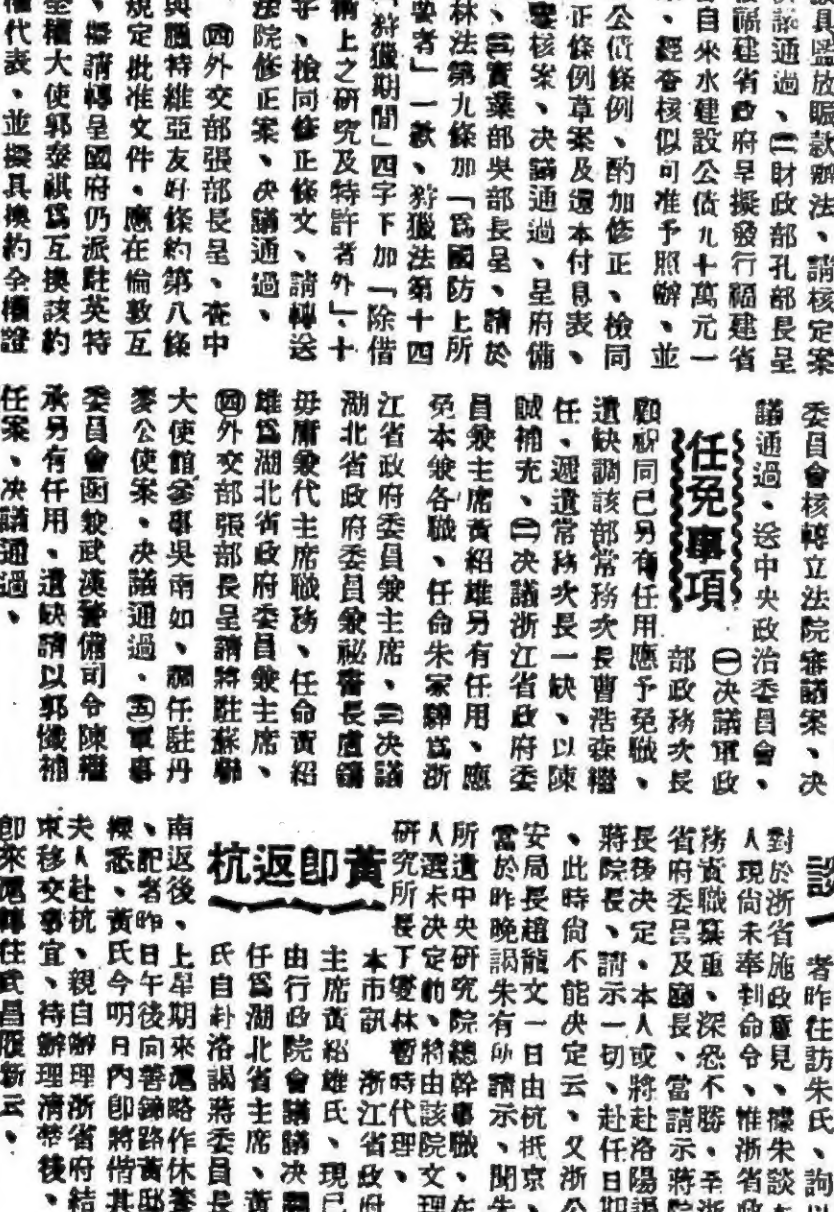 具監放賑款辦法、請核定案
決議通過、㊁財政部孔部長呈
福建省政府呈擬發行福建省
自來水建設公債九十萬元一
案、經查核似可准予照辦、並
公債條例、酌加修正、檢同
正條例草案及還本付息表、
鑒核案、決議通過、呈府備
、㊂實業部吳部長呈、請於
林法第九條加「爲國防上所
要者」一款、狩獵法第十四
「狩獵期間」四字下加「除借
術上之研究及特許者外」、十
字、檢同修正條文、請轉送
法院修正案、決議通過、
㊃外交部張部長呈、查中
與臘特維亞友好條約第八條
規定批准文件、應在倫敦互
、擬請轉呈國府仍派駐英特
全權大使郭泰祺爲互換該約
權代表、並擬具換約全權證
委員會核轉立法院審議案、決
議通過、送中央政治委員會、
任免事項
㊀決議軍政
部政務次長
顧祝同已另有任用應予免職、
遺缺調該部常務次長曹浩森繼
任、遞遺常務次長一缺、以陳
誠補充、㊁決議浙江省政府委
員兼主席黃紹雄另有任用、應
免本兼各職、任命朱家驊爲浙
江省政府委員兼主席、㊂決議
湖北省政府委員兼祕書長盧鑄
毋庸兼代主席職務、任命黃紹
雄爲湖北省政府委員兼主席、
㊃外交部張部長呈請將駐蘇聯
大使館參事吳南如、調任駐丹
麥公使案、決議通過、㊄軍事
委員會函兼武漢警備司令陳繼
承另有任用、遺缺請以郭懺補
任案、決議通過、
談
者昨往訪朱氏、詢以
對於浙省施政意見、據朱談
人現尚未奉到命令、惟浙省政
務責職綦重、深恐不勝、至浙
省府委員及廳長、當請示蔣院
長後決定、本人或將赴洛陽謁
蔣院長、請示一切、赴任日期
、此時尚不能決定云、又浙公
安局長趙龍文一日由杭抵京、
當於昨晚謁朱有所請示、聞朱
所遺中央研究院總幹事職、在
人選未決定前、將由該院文理
研究所長丁燮林暫時代理、
黃即返杭
本市訊 浙江省政府
主席黃紹雄氏、現已
由行政院會議議決調
任爲湖北省主席、黃
氏自赴洛謁蔣委員長
南返後、上星期來滬略作休養
、記者昨日午後向善鐘路黃邸
探悉、黃氏今明日內即將偕其
夫人赴杭、親自辦理浙省府結
束移交事宜、待辦理清楚後、
即來滬轉往武昌履新云、